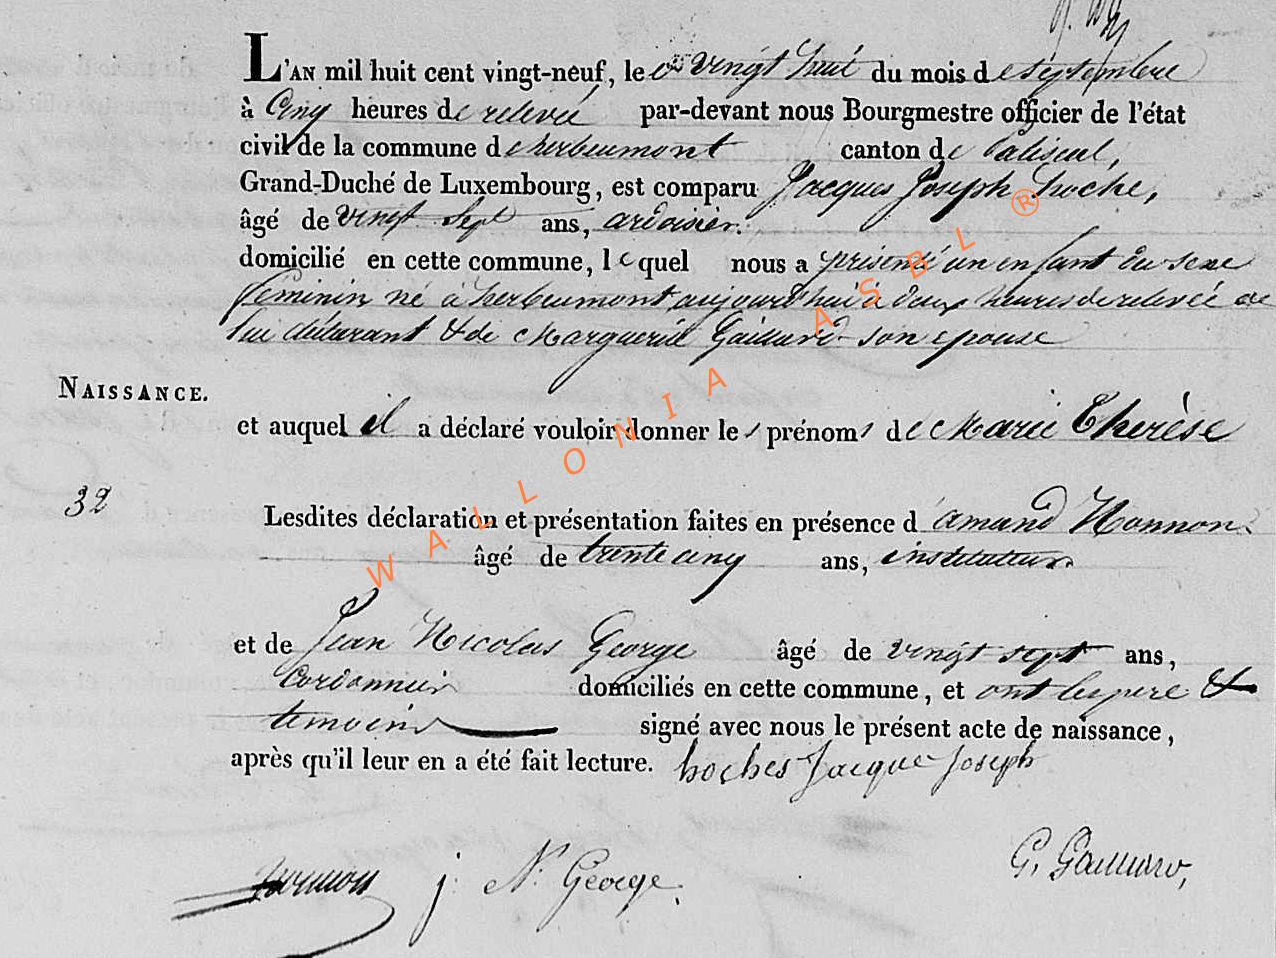 L'AN mil huit cent vingt-neuf, le vingt huit du mois de septembre
à Cinq heures de relevée par-devant nous Bourgmestre officier de l'état
civil de la commune d'herbeumont canton de Paliseul,
Grand-Duché de Luxembourg, est comparu Jacques Joseph hoche,
âgé de vingt sept ans, ardoisier.
domicilié en cette commune, lequel nous a présenté un enfant du sexe
feminin né à herbeumont aujourd'hui à deux heures de relevée de
lui déclarant & de Marguerite Gaillard son epouse
NAISSANCE.
et auquel il a déclaré vouloir donner les prénoms de Marie Thérèse
32
Lesdites déclaration et présentation faites en présence d'amand Honnon
âgé de trente cinq ans, instituteur
et de Jean Nicolas George âgé de vingt sept ans,
Cordonnier domiciliés en cette commune, et ont les pere &
temoins signé avec nous le présent acte de naissance,
après qu'il leur en a été fait lecture. hoches Jacque Joseph
G. Gaillard,
honnon j. N. George.
WALLONIA ASBL ®